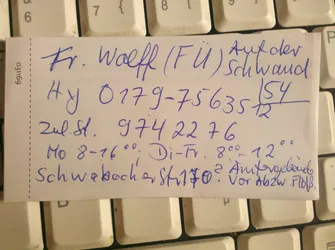 Fr. Wolff (FÜ) Auf der
Schwand
Hy 0179-75635 54
12
Zul.St. 974 22 76
Mo 8-16⁰⁰, Di-Fr. 8⁰⁰-12⁰⁰
Schwabacher Str. 170? Ämtergebäude
Vor Abzw.
09169